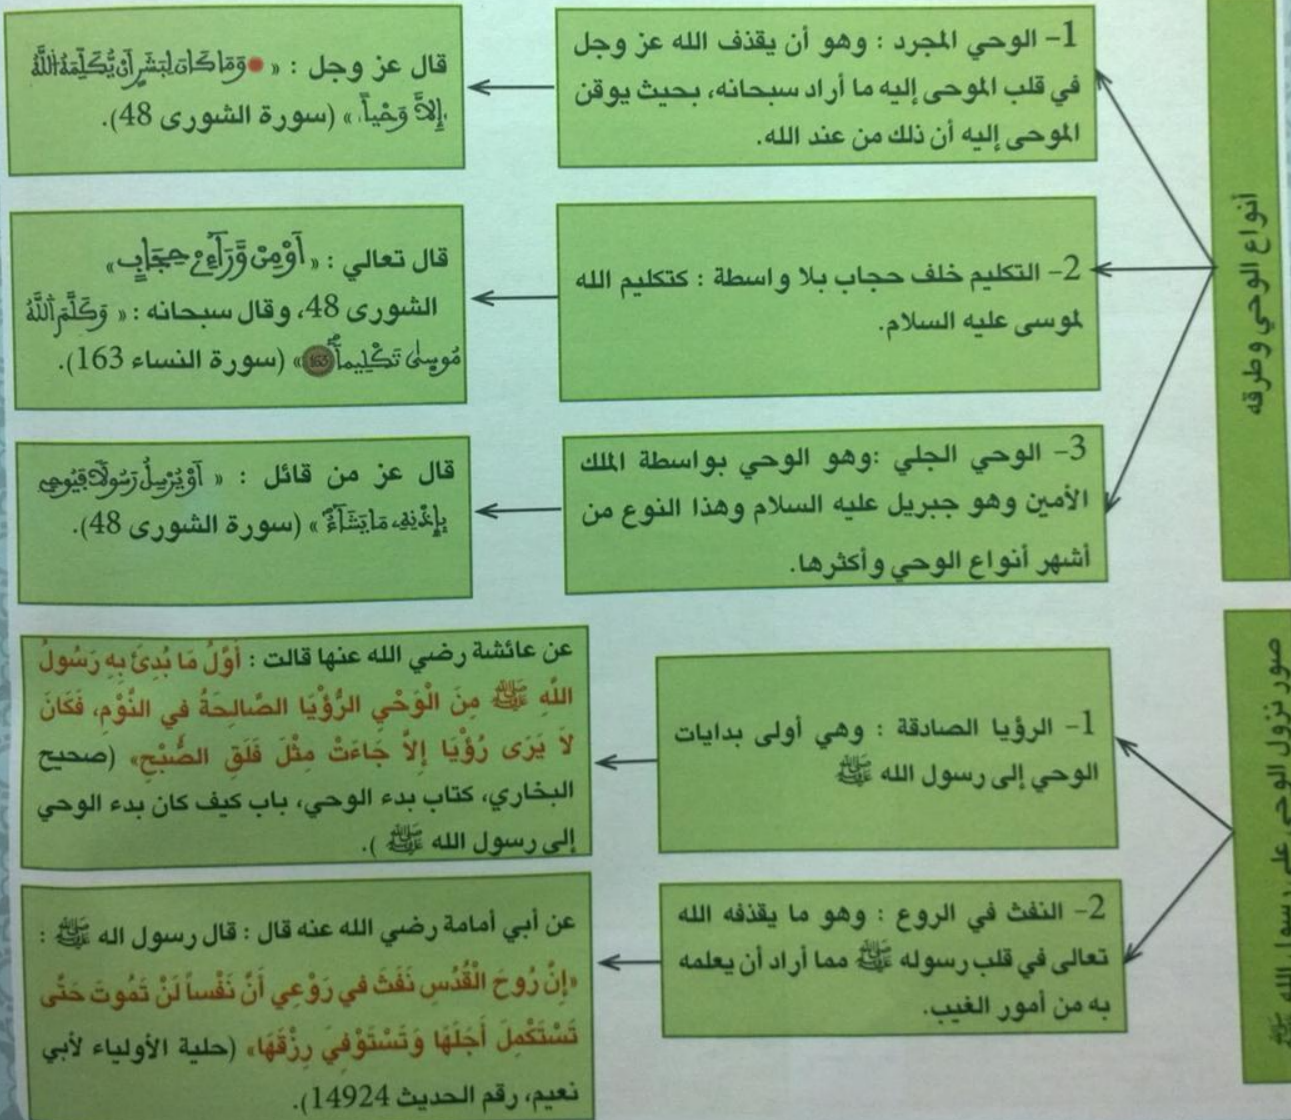 أنواع الوحي وطرقه
1- الوحي المجرد : وهو أن يقذف الله عز وجل
في قلب الموحى إليه ما أراد سبحانه، بحيث يوقن
الموحى إليه أن ذلك من عند الله.
قال عز وجل : « وَمَا كَانَ لِبَشَرٍ أَنْ يُّكَلِّمَهُ اللَّهُ
إِلاَّ وَحْياً » (سورة الشورى 48).
2- التكليم خلف حجاب بلا واسطة : كتكليم الله
لموسى عليه السلام.
قال تعالي : « أَوْ مِنْ وَّرَآءِ حِجَابٍ »
الشورى 48، وقال سبحانه : « وَكَلَّمَ اَللَّهُ
مُوسىٰ تَكْلِيماً 163 » (سورة النساء 163).
3- الوحي الجلي :وهو الوحي بواسطة الملك
الأمين وهو جبريل عليه السلام وهذا النوع من
أشهر أنواع الوحي وأكثرها.
قال عز من قائل : « أَوْ يُرْسِلُ رَسُولًا فَيُوحِي
بِإِذْنِهِ مَا يَشَآءُ » (سورة الشورى 48).
صور نزول الوحي على رسول الله ﷺ
1- الرؤيا الصادقة : وهي أولى بدايات
الوحي إلى رسول الله ﷺ
عن عائشة رضي الله عنها قالت : أَوَّلُ مَا بُدِئَ بِهِ رَسُولُ
اللَّهِ ﷺ مِنَ الْوَحْيِ الرُّؤْيَا الصَّالِحَةُ في النَّوْمِ، فَكَانَ
لاَ يَرَى رُؤْيَا إِلاَّ جَاءَتْ مِثْلَ فَلَقِ الصُّبْحِ» (صحيح
البخاري، كتاب بدء الوحي، باب كيف كان بدء الوحي
إلى رسول الله ﷺ ).
2- النفث في الروع : وهو ما يقذفه الله
تعالى في قلب رسوله ﷺ مما أراد أن يعلمه
به من أمور الغيب.
عن أبي أمامة رضي الله عنه قال : قال رسول اله ﷺ :
«إِنَّ رُوحَ الْقُدُسِ نَفَثَ في رَوْعِي أَنَّ نَفْساً لَنْ تَمُوتَ حَتَّى
تَسْتَكْمِلَ أَجَلَهَا وَتَسْتَوْفِيَ رِزْقَهَا» (حلية الأولياء لأبي
نعيم، رقم الحديث 14924).